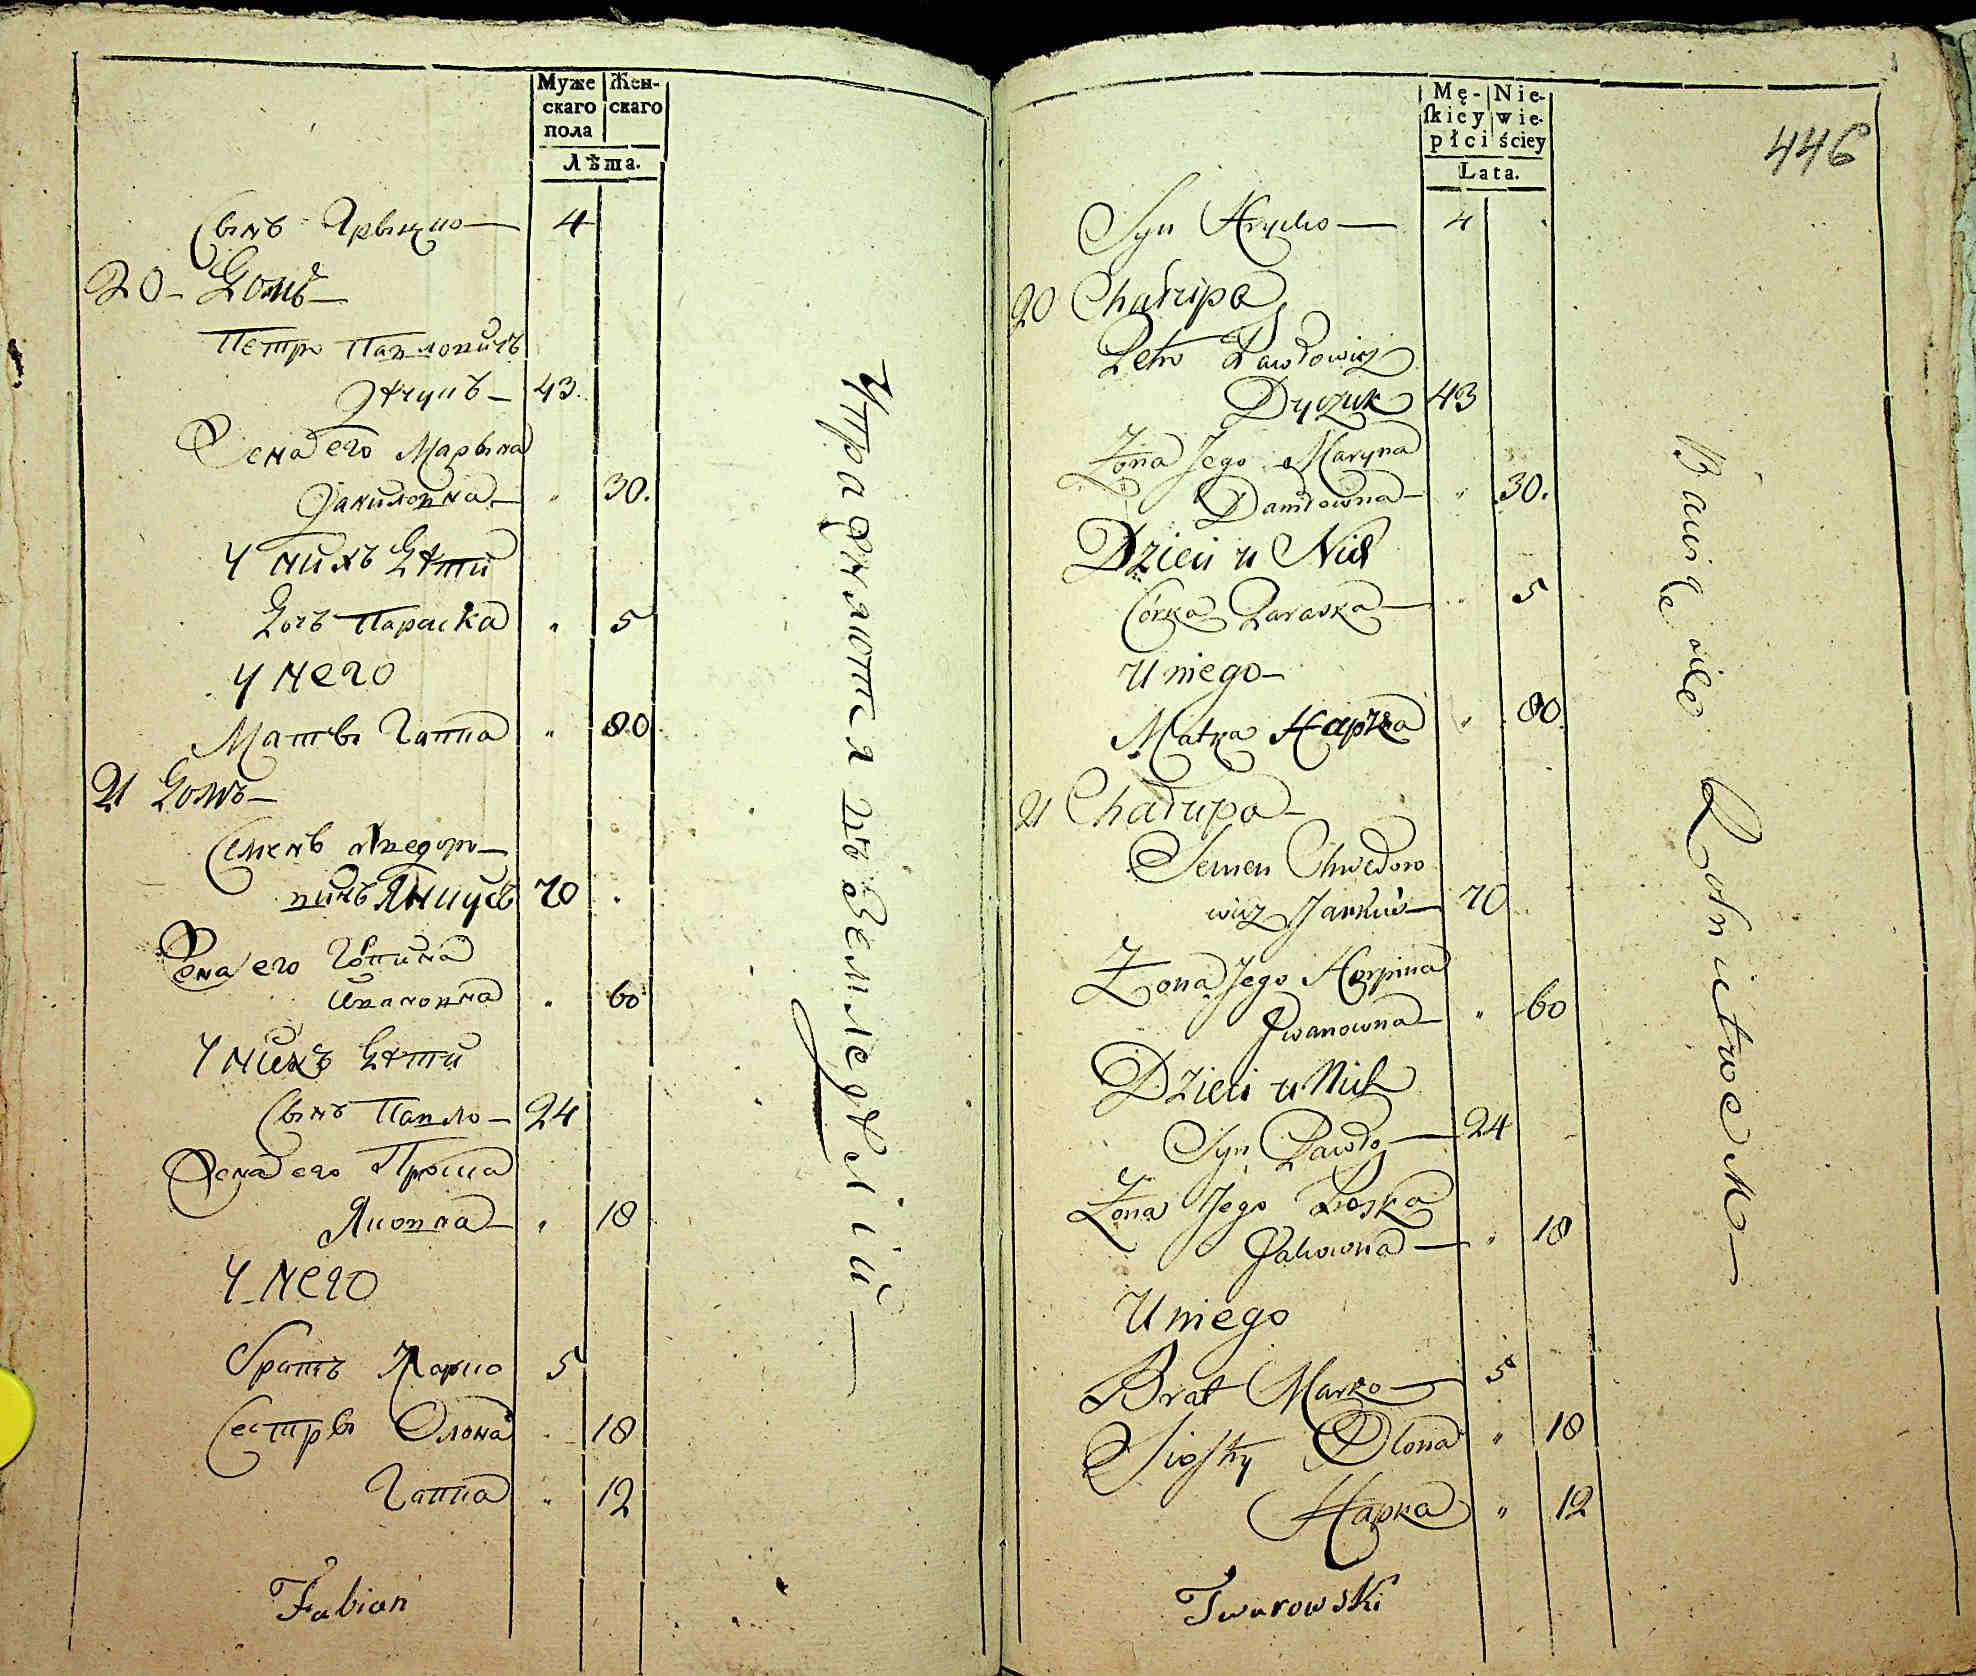 Муже
скаго
пола
Жен-
скаго
Лѣта.
Сынъ Грыцко — 4
20 - Домъ —
Петро Павловичъ
Дячукъ — 43.
Жена его Марына
Даниловна — " 30.
У нихъ Дѣти
Дочь Параска " 5
У него
Мать Гапка " 80
21 Домъ —
Семенъ Хведоро-
вичъ Янкувъ 70
Жена его Горпина
Ивановна " 60
У нихъ Дѣти
Сынъ Павло — 24
Жена его Проска
Яковна — " 18
У него
Братъ Марко 5
Сестры Олона " 18
Гапка " 12
Fabian
Упражняются въ Земледѣлій —
Mę-
ſkiey
płci
Nie-
wie-
ściey
Lata.
446
Syn Hrycko — 4
20 Chałupa
Petro Pawłowicz
Dyczuk 43
Żona Jego Maryna
Daniłowna — " 30.
Dzieci u Nich
Córka Paraska — " 5
U niego —
Matka Hapka " 80
21 Chałupa —
Semen Chwedoro
wicz Jankuw — 70
Żona Jego Horpina
Jwanowna — " 60
Dzieci u Nich
Syn Pawło — 24
Żona Jego Proska
Jakowna — " 18
U niego
Brat Marko — 5
Siostry Olona " 18
Hapka " 12
Twarowski
Bawią się Rolnictwem —